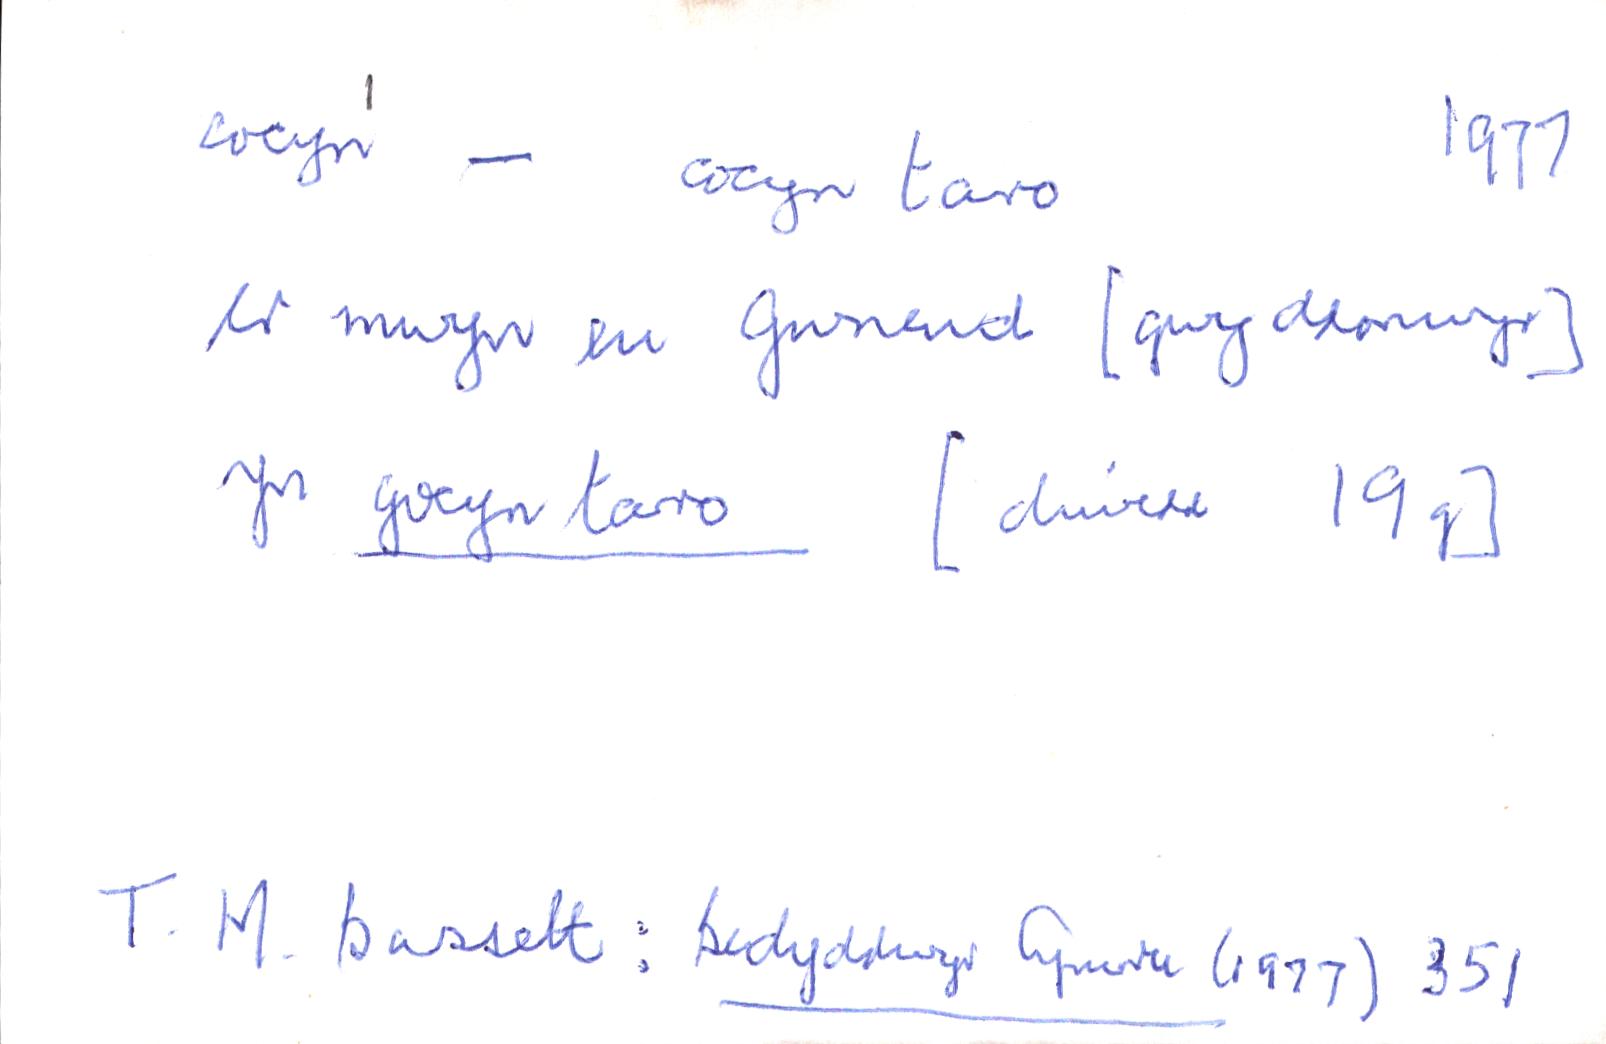 cocyn¹ — cocyn taro 1977
i'r mwyn eu gwneud [gwyddonwyr]
yn gocyn taro [diwedd 19g]
T. M. Bassett: Bedyddwyr Cymru (1977) 351